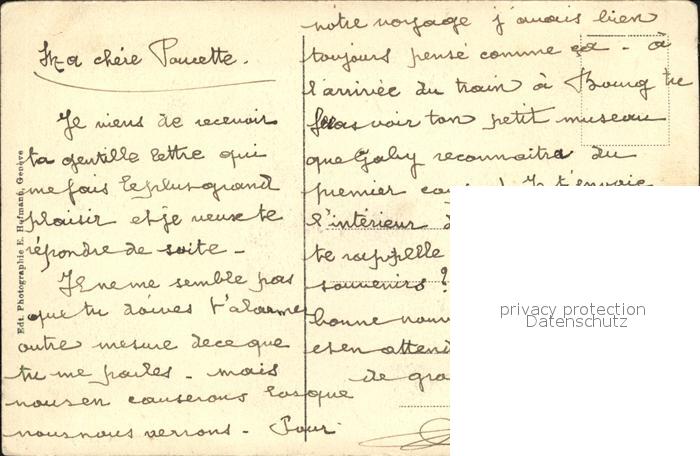 Ma chère Paucette.
Je viens de recevoir
ta gentille lettre qui
me fais le plus grand
plaisir et je veux te
répondre de suite -
Je ne me semble pas
que tu doives t'alarmer
outre mesure de ce que
tu me parles - mais
nous en causerons losque
nous nous verrons - Pour
notre voyage j'avais bien
toujours pensé comme ça - à
l'arrivée du train à Bourg tu
feras voir ton petit museau
que Gaby reconnaitra du
premier Je t'envoie
l'intérieur
te rappelle
souvenirs ?
bonne
et en
de
Edt. Photographie E. Hofmann, Genève
privacy protection
Datenschutz